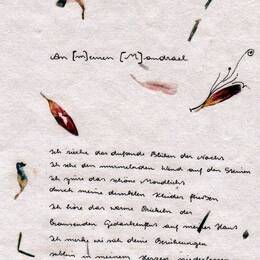 An [m]einen [M]andrael
Ich rieche das duftende Blühen der Nachts
Ich sehe den murmelnden Wind auf den Steinen
Ich spüre das schöne Mondlicht
durch meine dunklen Kleider fließen
Ich höre das warme Prickeln der
brausenden Gedankenflut auf meiner Haut
Ich merke wie sich deine Berührungen
in meinem Herzen niederlassen